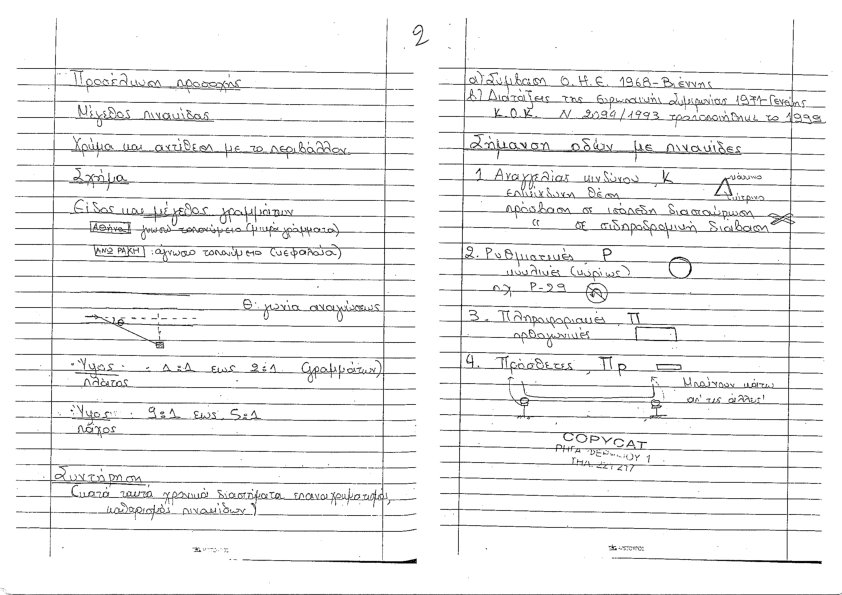 2
Προσέλκυση προσοχής
Μέγεθος πινακίδας
Χρώμα και αντίθεση με το περιβάλλον
Σχήμα
Είδος και μέγεθος γραμμάτων
Αθήνα γνωστό τοπωνύμειο (μικρά γράμματα)
ΑΝΩ ΡΑΧΗ : άγνωστο τοπωνύμειο (κεφαλαία)
θ: γωνία αναγνώσεως
θ
Ύψος : 1:1 εως 2:1 (γραμμάτων)
πλάτος
Ύψος : 9:1 εως 5:1
πάχος
Συντήρηση
(κατά τακτά χρονικά διαστήματα επαναχρωματισμός,
καθαρισμός πινακίδων)
α) Σύμβαση Ο.Η.Ε. 1968-Βιέννης
β) Διατάξεις της Ευρωπαϊκής Συμφωνίας 1971-Γενεύης
Κ.Ο.Κ. Ν 2094/1993 τροποποιήθηκε το 1999
Σήμανση οδών με πινακίδες
1. Αναγγελίας κινδύνου, Κ
κόκκινο
κίτρινο
επικίνδυνη θέση
πρόσβαση σε ισόπεδη διασταύρωση
" σε σιδηροδρομική διάβαση
2. Ρυθμιστικές, Ρ
κυκλικές (κυρίως)
πχ Ρ-29
3. Πληροφοριακές, Π
ορθογωνικές
4. Πρόσθετες, Πρ
Μπαίνουν κάτω
απ' τις άλλες!
COPYCAT
ΡΗΓΑ 1
ΤΗΛ. 221217